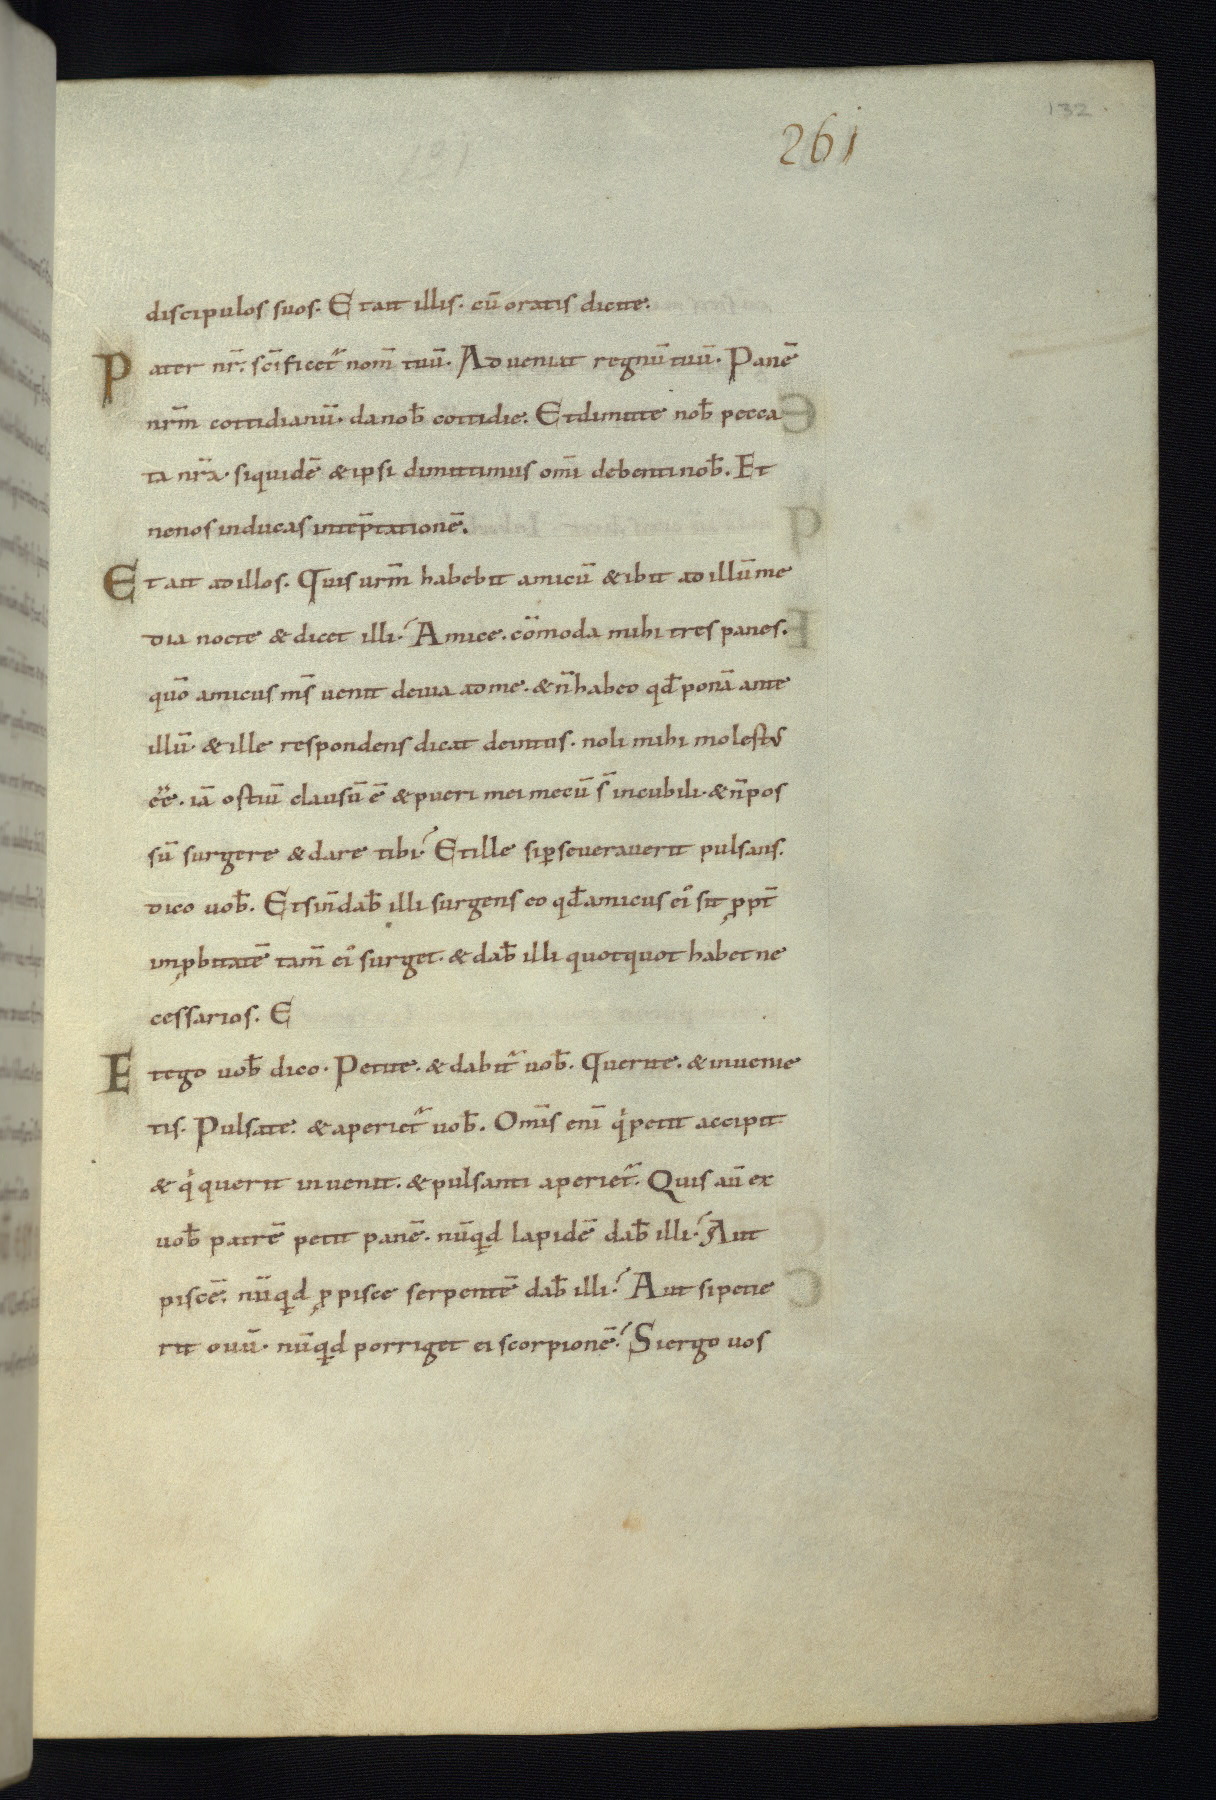 132
261
discipulos suos. Et ait illis. cū oratis dicite.
Pater nr̄. scīficet᷑ nom̄ tuū. Adueniat regnū tuū. Panē
nrm̄ cottidianū. da nob̄ cottidie. Et dimitte nob̄ pecca
ta nr̄a. siquidē & ipsi dimittimus omī debenti nob̄. Et
ne nos inducas intēptationē.
Et ait ad illos. Quis urm̄ habebit amicū & ibit ad illū me
dia nocte & dicet illi. Amice. cōmoda mihi tres panes.
quō amicus ms̄ uenit deuia ad me. & n̄ habeo qd̄ ponā ante
illū. & ille respondens dicat deintus. noli mihi molestus
eē. iā ostiū clausū ē & pueri mei mecū s̄ incubili. & n̄ pos
sū surgere & dare tibi. Et ille si ꝑseuerauerit pulsans.
dico uob̄. Et si n̄ dab̄ illi surgens eo qd̄ amicus ei᷒ sit ꝓpt̄
inꝓbitatē tam̄ ei᷒ surget. & dab̄ illi quotquot habet ne
cessarios. E
Et ego uob̄ dico. Petite. & dabit᷑ uob̄. Querite. & inuenie
tis. Pulsate. & aperiet᷑ uob̄. Om̄is eni᷒ qͥ petit accipit
& qͥ querit inuenit. & pulsanti aperiet᷑. Quis aū ex
uob̄ patrē petit panē. nūqͥd lapidē dab̄ illi. Aut
piscē. nūqͥd ꝓ pisce serpentē dab̄ illi. Aut si petie
rit ouū. nūqͥd porriget ei scorpionē. Si ergo uos